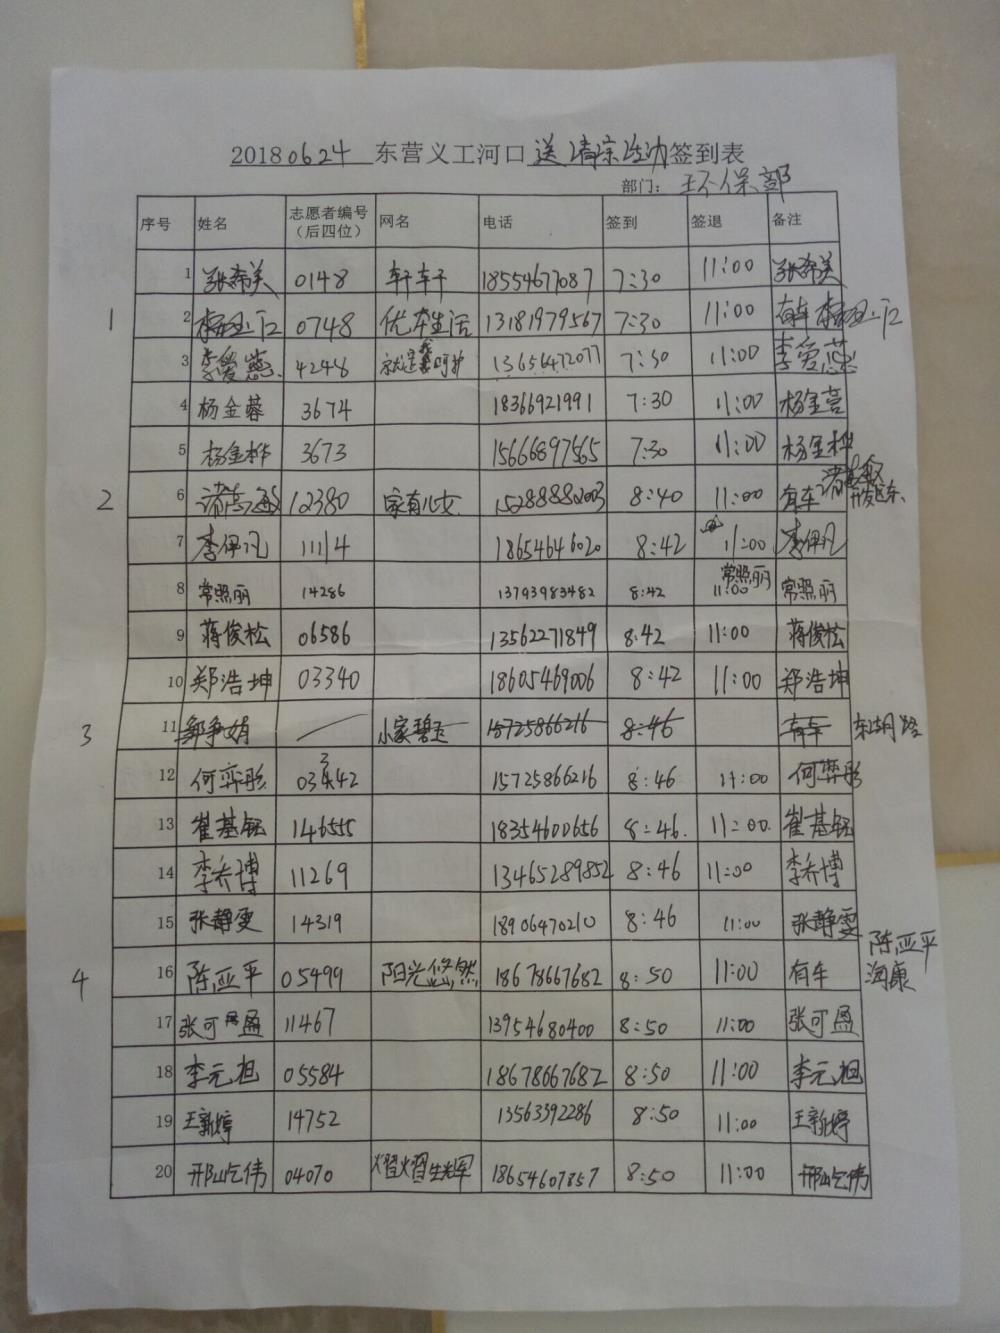 20180624 东营义工河口送清凉活动签到表
部门：环保部
序号 姓名 志愿者编号（后四位） 网名 电话 签到 签退 备注
1 张希美 0148 轩轩子 18554677087 7:30 11:00 张希美
1
2 0748 优本生活 13181979567 7:30 11:00 有车
3 李爱慈 4248 就是我呵护 13656472077 7:30 11:00 李爱慈
4 杨金蓉 3674 18366921991 7:30 11:00 杨金蓉
5 杨金桦 3673 15666897565 7:30 11:00 杨金桦
2
6 诸志敏 12380 家有儿女 15288882003 8:40 11:00 有车 诸志敏
7 李伊凡 11114 18654646020 8:42 11:00 李伊凡
8 常照丽 14286 13793983482 8:42 常照丽 11:00 常照丽
9 蒋俊松 06586 13562271849 8:42 11:00 蒋俊松
10 郑浩坤 03340 18605469006 8:42 11:00 郑浩坤
3
11 邹争娟 小家碧玉 15725866216 8:46 有车 东湖路
12 何弈彤 03342 15725866216 8:46 11:00 何弈彤
13 崔基钰 146555 18354600656 8:46. 11:00. 崔基钰
14 李乔博 11269 13465289852 8:46 11:00 李乔博
15 张静雯 14319 18906470210 8:46 11:00 张静雯
4
16 陈亚平 05499 阳光悠然 18678667682 8:50 11:00 有车 陈亚平 海康
17 张可盈 11467 13954680400 8:50 11:00 张可盈
18 李元旭 05584 18678667682 8:50 11:00 李元旭
19 王新婷 14752 13563392286 8:50 11:00 王新婷
20 邢屹伟 04070 熠熠生辉 18654607857 8:50 11:00 邢屹伟